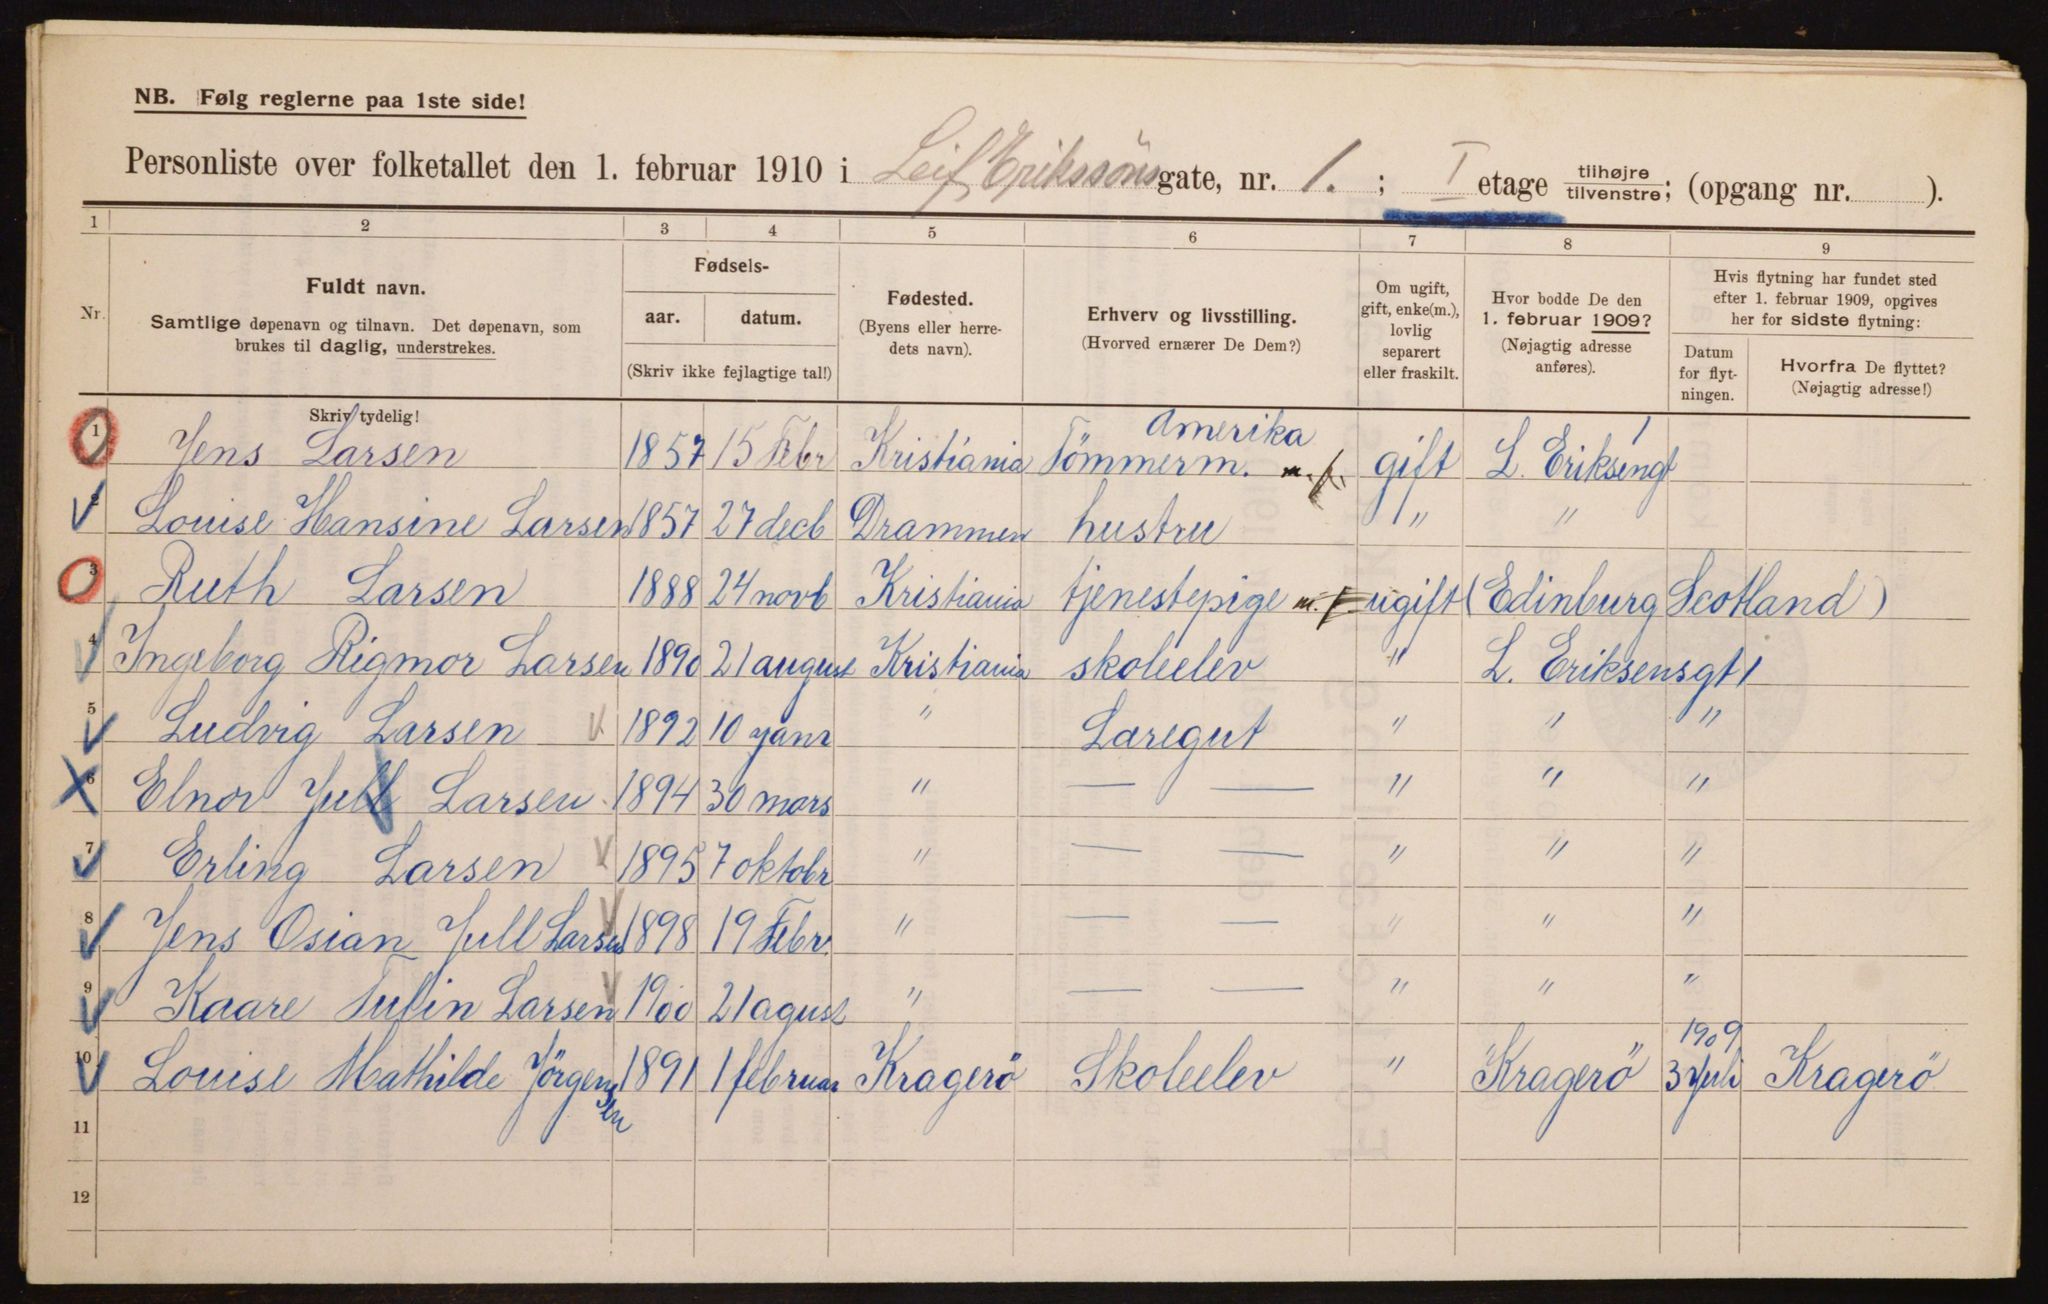 NB. Følg reglerne paa 1ste side!
Personliste over folketallet den 1. februar 1910 i Leif Erikssöns gate, nr. 1. ; I etage tilhøjre tilvenstre; (opgang nr. ).
1 2 3 4 5 6 7 8 9
Nr. Fuldt navn. Samtlige døpenavn og tilnavn. Det døpenavn, som brukes til daglig, understrekes.
Fødsels-
aar. datum.
(Skriv ikke fejlagtige tal!)
Fødested. (Byens eller herredets navn).
Erhverv og livsstilling. (Hvorved ernærer De Dem?)
Om ugift, gift, enke(m.), lovlig separert eller fraskilt.
Hvor bodde De den 1. februar 1909? (Nøjagtig adresse anføres).
Hvis flytning har fundet sted efter 1. februar 1909, opgives her for sidste flytning:
Datum for flytningen.
Hvorfra De flyttet? (Nøjagtig adresse!)
Skriv tydelig!
Amerika
1 Jens Larsen 1857 15 Febr Kristiania Tömmerm. m. k. gift L. Eriksengt 1
2 Louise Hansine Larsen 1857 27 decb Drammen hustru " "
3 Ruth Larsen 1888 24 novb Kristiania tjenestepige ugift (Edinburg Scotland)
4 Ingeborg Rigmor Larsen 1890 21 august Kristiania skoleelev " L. Eriksensgt 1
5 Ludvig Larsen 1892 10 janr " Laregut " " "
6 Elnor Jull Larsen 1894 30 mars " — — " " "
7 Erling Larsen 1895 7 oktobr " — — " " "
8 Jens Osian Jull Larsen 1898 19 Febr. " — — " " "
9 Kaare Tulin Larsen 1900 21 agust " — — " " "
1909
10 Louise Mathilde Jörgensen 1891 1 februar Kragerö Skoleelev " Kragerö 3 Juli Kragerö
11
12